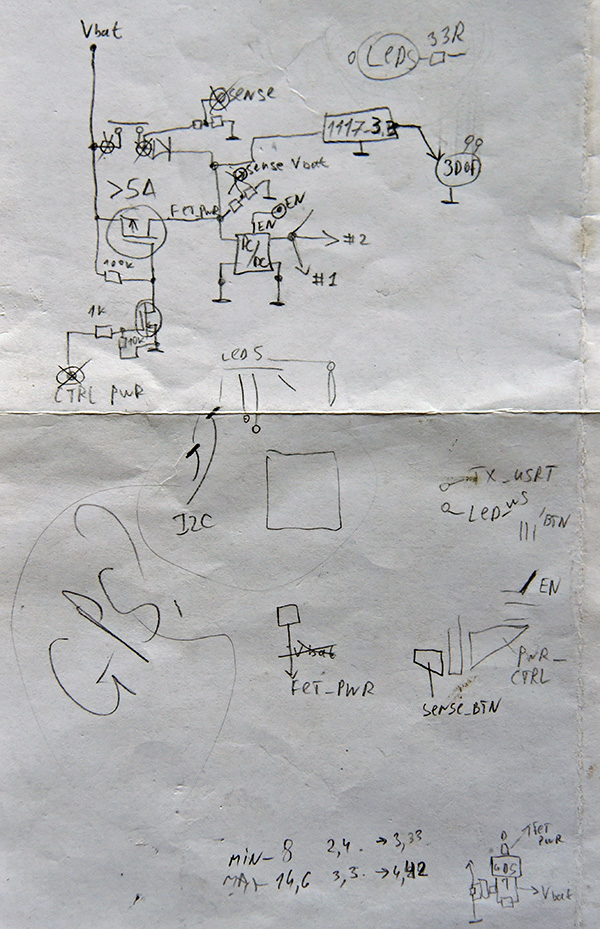 Vbat
LeDS 33R
sense
1117-3,3
3DOF
sense Vbat
>5A
FET_PWR
EN
EN
DC/DC
#2
#1
100K
1K
10K
CTRL PWR
LeDS
I2C
TX_USRT
LeD_WS
BTN
GPS
EN
PWR_
CTRL
Vbat
FeT_PWR
sense_BTN
MIN- 8 2,4. → 3,33
MAX- 14,6 3,3. → 4,42
D
FeT
PWR
Vbat